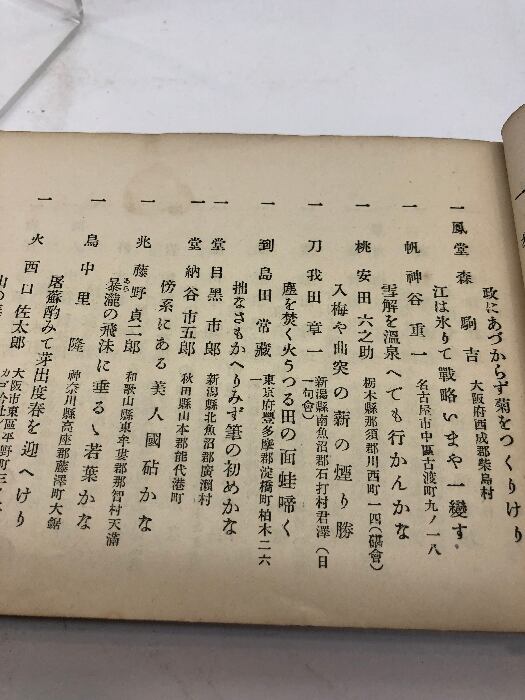 政にあづからず菊をつくりけり
一鳳堂 森駒吉 大阪府西成郡柴島村
江は氷りて戰略いまや一變す
一帆 神谷重一 名古屋市中區古渡町九ノ一八
雪解を溫泉へでも行かんかな
一桃 安田六之助 栃木縣那須郡川西町一四(碪會)
入梅や曲突の薪の煙り勝
一刀 我田章一 新潟縣南魚沼郡石打村君澤(日一句會)
塵を焚く火うつる田の面蛙啼く
一到 島田常藏 東京府豐多摩郡淀橋町柏木二六一
拙なさもかへりみず筆の初めかな
一堂 目黑市郎 新潟縣北魚沼郡廣瀨村
一堂 納谷市五郎 秋田縣山本郡能代港町
傍系にある美人國砧かな
一兆 藤野貞二郎 和歌山縣東牟婁郡那智村天滿
暴瀧の飛沫に垂るゝ若葉かな
あら
一鳥 中里隆 神奈川縣高座郡藤澤町大鋸
屠蘇酌みて芽出度春を迎へけり
一火 西口佐太郎 大阪市東區平野町三